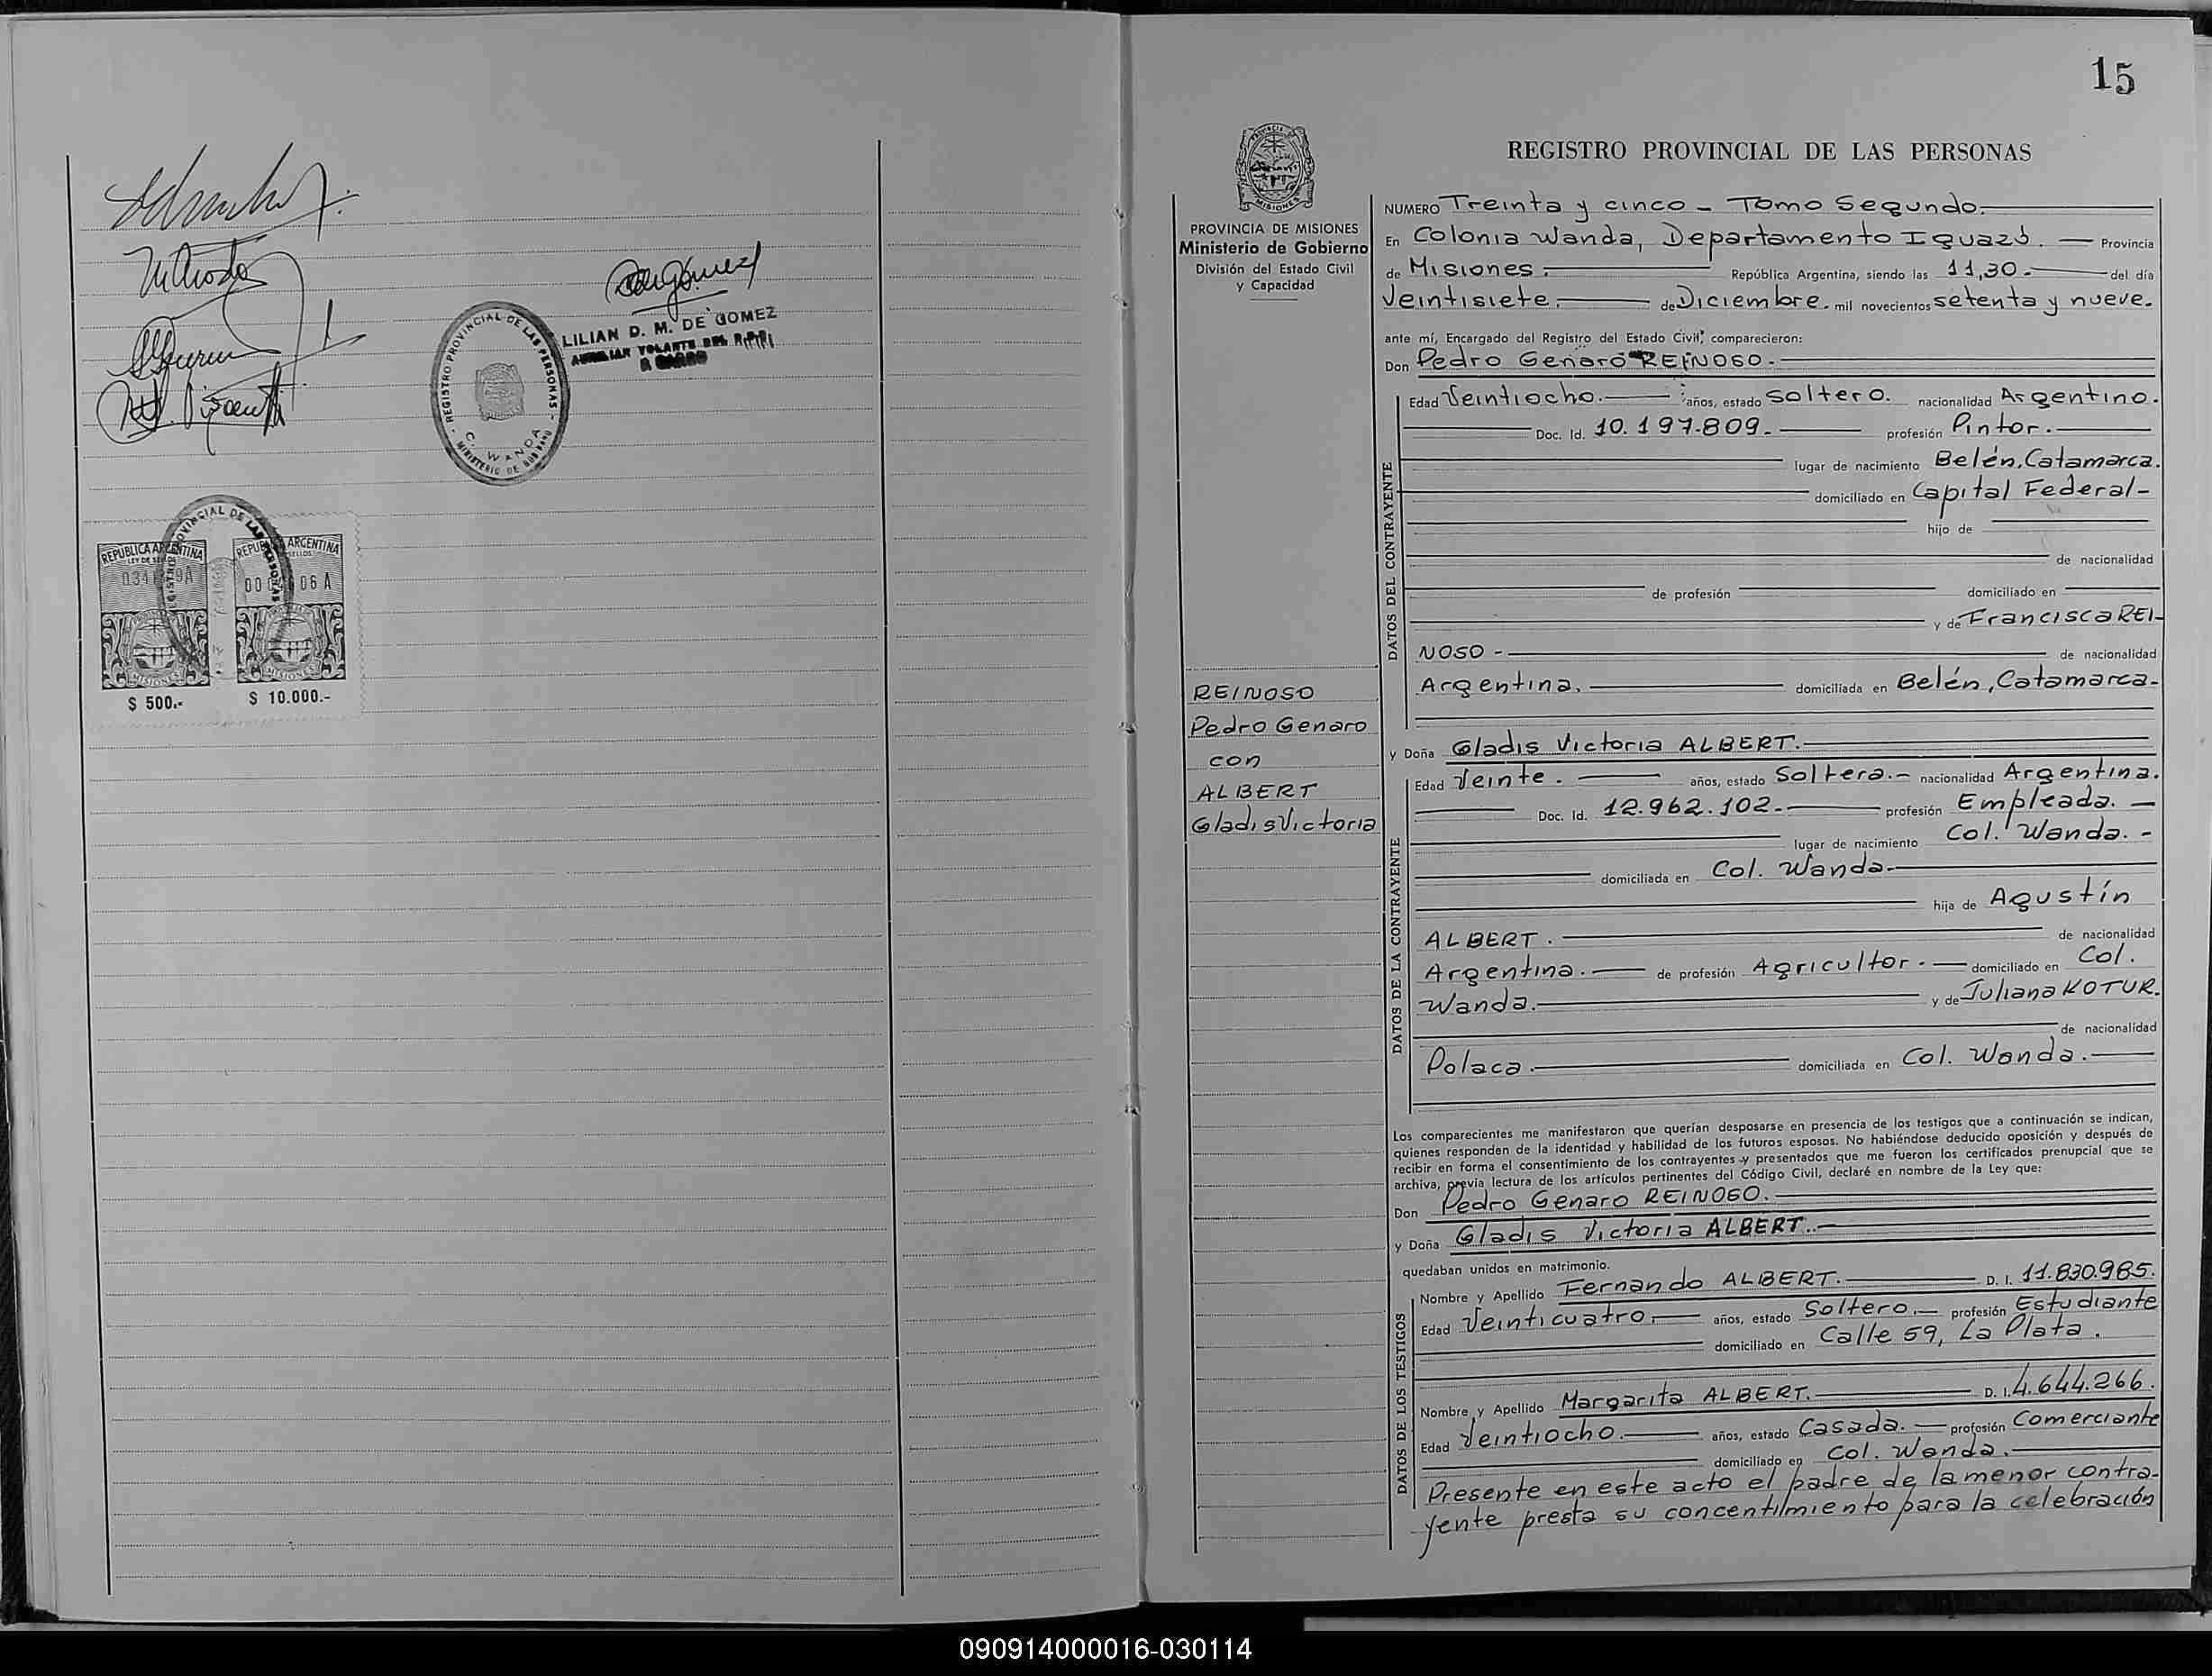 LILIAN D. M. DE GOMEZ
AUXILIAR VOLANTE DEL R.P.P.
A CARGO
REGISTRO PROVINCIAL DE LAS PERSONAS
C. WANDA
MINISTERIO DE
REPUBLICA ARGENTINA
REPUBLICA ARGENTINA
MISIONES
MISIONES
$ 500.-
$ 10.000.-
15
REGISTRO PROVINCIAL DE LAS PERSONAS
PROVINCIA DE MISIONES
Ministerio de Gobierno
División del Estado Civil
y Capacidad
REINOSO
Pedro Genaro
con
ALBERT
Gladis Victoria
NUMERO Treinta y cinco - Tomo Segundo.
En Colonia Wanda, Departamento Iguazú. Provincia
de Misiones. República Argentina, siendo las 11,30.- del día
Veintisiete. de Diciembre. mil novecientos setenta y nueve.
ante mí, Encargado del Registro del Estado Civil, comparecieron:
Don Pedro Genaro REINOSO.-
DATOS DEL CONTRAYENTE
Edad Veintiocho. años, estado soltero. nacionalidad Argentino.
Doc. Id. 10.197.809.- profesión Pintor.
lugar de nacimiento Belén, Catamarca.
domiciliado en Capital Federal-
hijo de
de nacionalidad
de profesión domiciliado en
y de Francisca REI-
NOSO - de nacionalidad
Argentina. domiciliada en Belén, Catamarca-
y Doña Gladis Victoria ALBERT.
DATOS DE LA CONTRAYENTE
Edad Veinte. años, estado Soltera.- nacionalidad Argentina.
Doc. Id. 12.962.102.- profesión Empleada.
lugar de nacimiento Col. Wanda.-
domiciliada en Col. Wanda.
hija de Agustín
ALBERT. de nacionalidad
Argentina. de profesión Agricultor.- domiciliado en Col.
Wanda. y de Juliana KOTUR.
de nacionalidad
Polaca. domiciliada en Col. Wanda.
Los comparecientes me manifestaron que querían desposarse en presencia de los testigos que a continuación se indican,
quienes responden de la identidad y habilidad de los futuros esposos. No habiéndose deducido oposición y después de
recibir en forma el consentimiento de los contrayentes y presentados que me fueron los certificados prenupcial que se
archiva, previa lectura de los artículos pertinentes del Código Civil, declaré en nombre de la Ley que:
Don Pedro Genaro REINOSO.
y Doña Gladis Victoria ALBERT.
quedaban unidos en matrimonio.
DATOS DE LOS TESTIGOS
Nombre y Apellido Fernando ALBERT. D. I. 11.830.985.
Edad Veinticuatro. años, estado Soltero. profesión Estudiante
domiciliado en Calle 59, La Plata.
Nombre y Apellido Margarita ALBERT. D. I. 4.644.266.
Edad Veintiocho. años, estado Casada. profesión Comerciante
domiciliado en Col. Wanda.
Presente en este acto el padre de la menor contra-
yente presta su concentimiento para la celebración
090914000016-030114